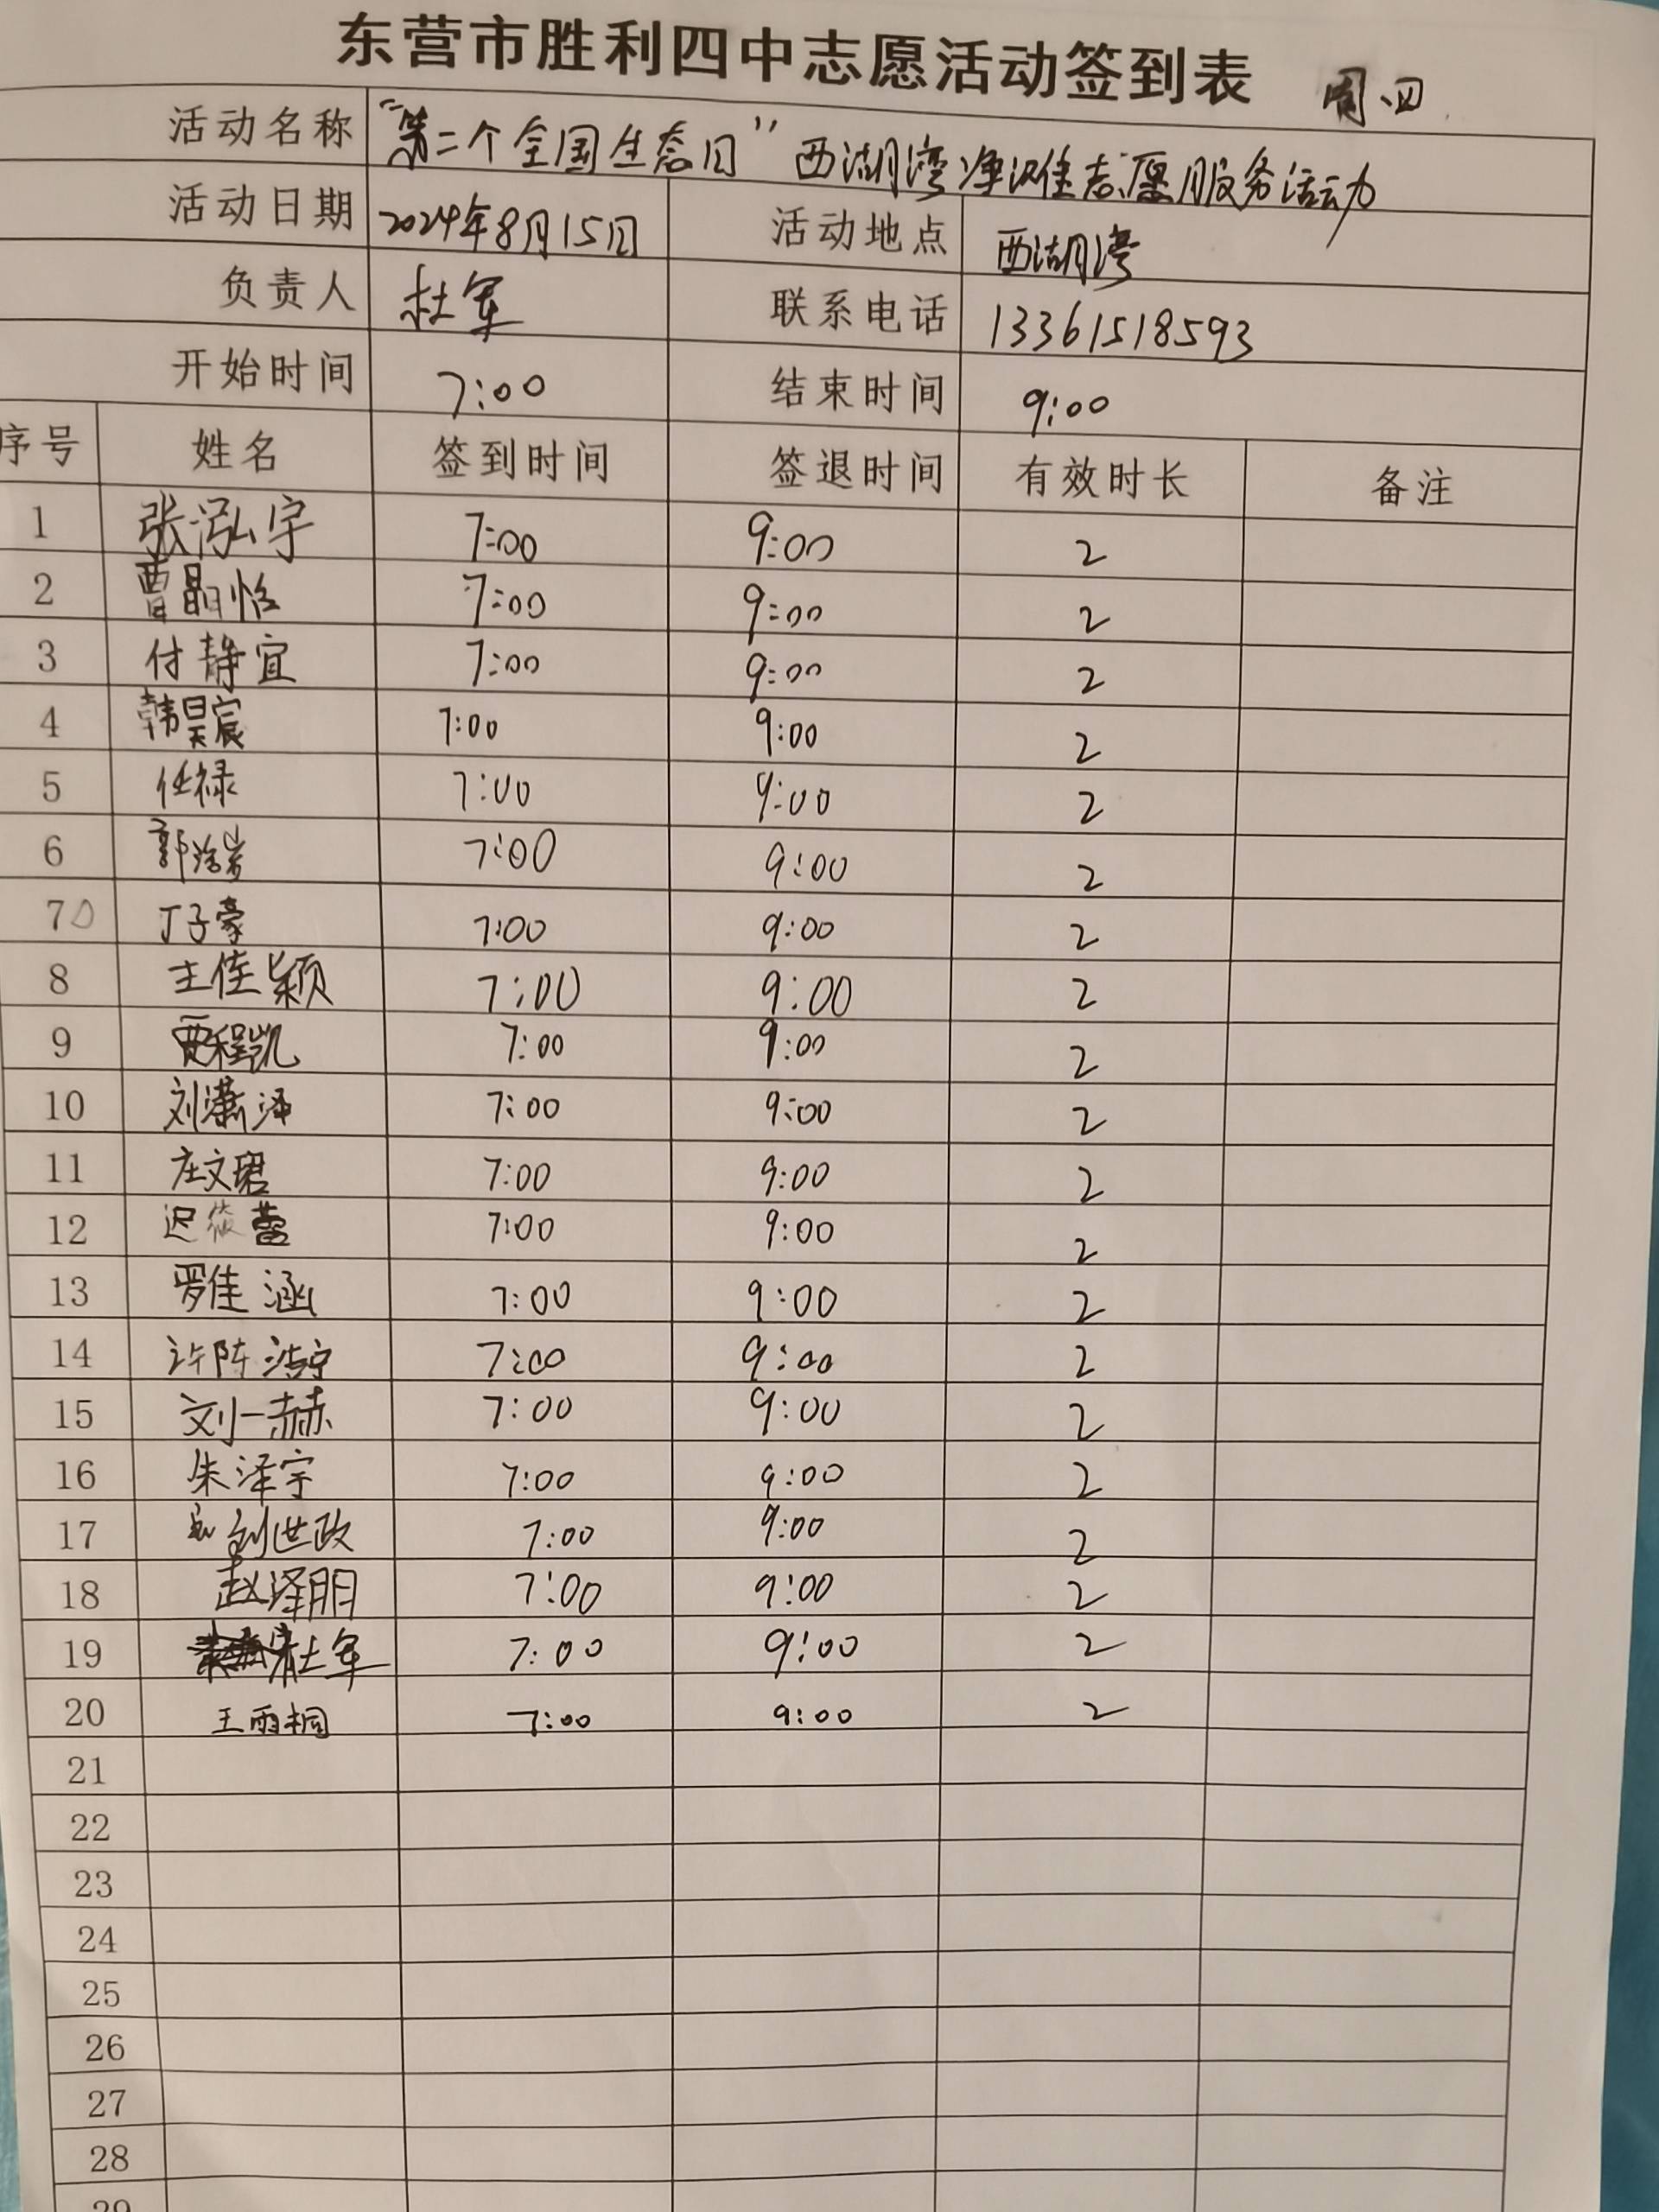 东营市胜利四中志愿活动签到表 周四
活动名称 "第二个全国生态日" 西湖湾净滩志愿服务活动
活动日期 2024年8月15日 活动地点 西湖湾
负责人 杜军 联系电话 13361518593
开始时间 7:00 结束时间 9:00
序号 姓名 签到时间 签退时间 有效时长 备注
1 张泓宇 7:00 9:00 2
2 曹晶怡 7:00 9:00 2
3 付静宜 7:00 9:00 2
4 韩昊宸 7:00 9:00 2
5 任禄 7:00 9:00 2
6 郭浩岩 7:00 9:00 2
7 丁子豪 7:00 9:00 2
8 王佳颖 7:00 9:00 2
9 贾程凯 7:00 9:00 2
10 刘潇泽 7:00 9:00 2
11 庄文珺 7:00 9:00 2
12 迟筱蕾 7:00 9:00 2
13 罗佳涵 7:00 9:00 2
14 许陈浩宇 7:00 9:00 2
15 刘一赫 7:00 9:00 2
16 朱泽宇 7:00 9:00 2
17 刘世政 7:00 9:00 2
18 赵泽朋 7:00 9:00 2
19 杜军 7:00 9:00 2
20 王雨桐 7:00 9:00 2
21
22
23
24
25
26
27
28
29